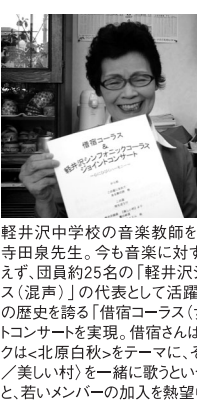 借宿コーラス
&
軽井沢シンフォニックコーラス
ジョイントコンサート
軽井沢中学校の音楽教師を
寺田泉先生。今も音楽に対す
えず、団員約25名の「軽井沢シ
ス（混声）」の代表として活躍
の歴史を誇る「借宿コーラス（
トコンサートを実現。借宿さんは
クは<北原白秋>をテーマに、そ
／美しい村〉を一緒に歌うとい
と、若いメンバーの加入を熱望